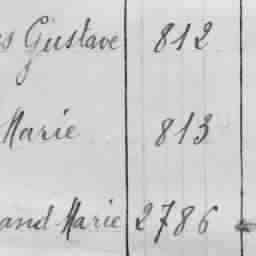 s Gustave 812
Marie 813
and Marie 2786